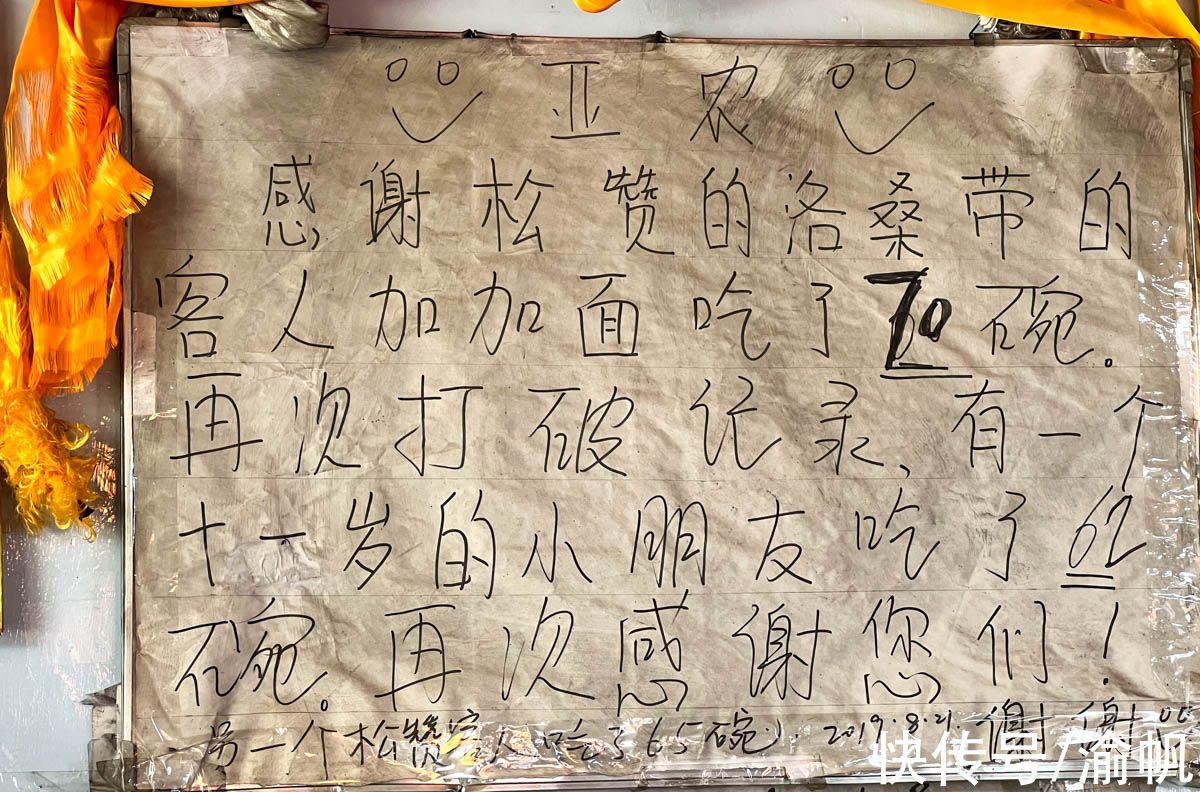 亚农
感谢松赞的洛桑带的
客人加加面吃了70碗。
再次打破记录、有一个
十一岁的小朋友吃了62
碗。再次感谢您们!
另一个松赞客人吃了65碗). 2019.8.21. 谢谢
快传号/渝帆